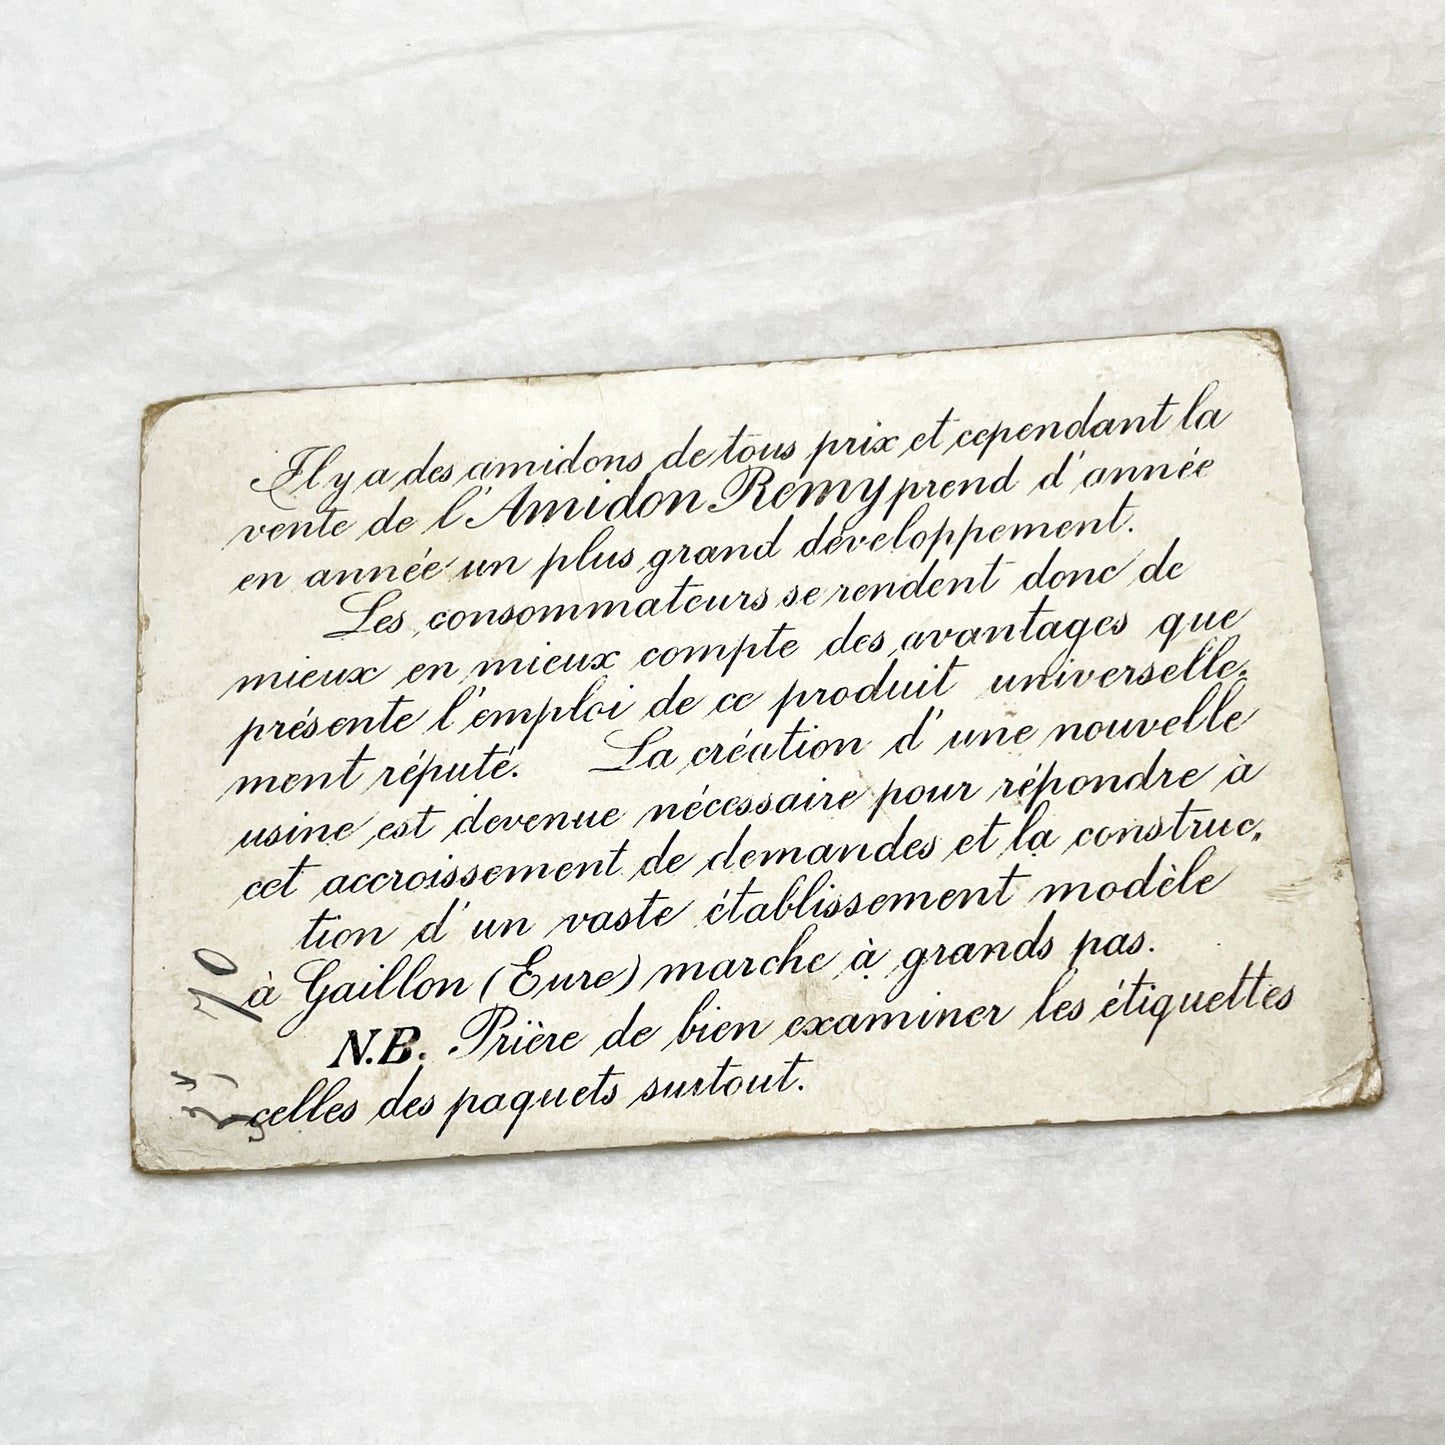 Il y a des amidons de tous prix et cependant la
vente de l'Amidon Remy prend d'année
en année un plus grand développement.
Les consommateurs se rendent donc de
mieux en mieux compte des avantages que
présente l'emploi de ce produit universelle-
ment réputé. La création d'une nouvelle
usine est devenue nécessaire pour répondre à
cet accroissement de demandes et la construc-
tion d'un vaste établissement modèle
à Gaillon (Eure) marche à grands pas.
N.B. Prière de bien examiner les étiquettes
celles des paquets surtout.
70